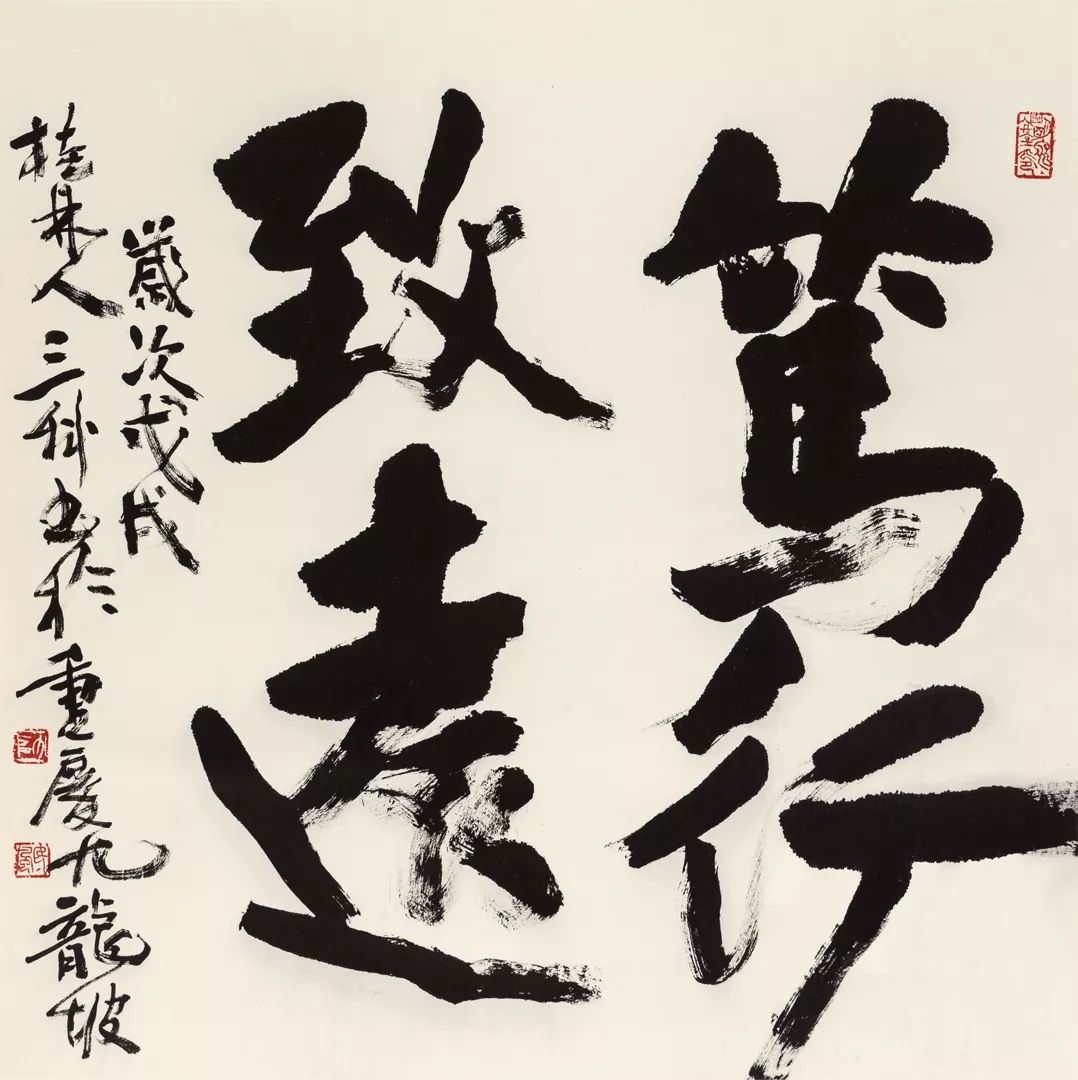 篤行
致遠
歲次戊戌
桂林人三科书於重慶九龍坡